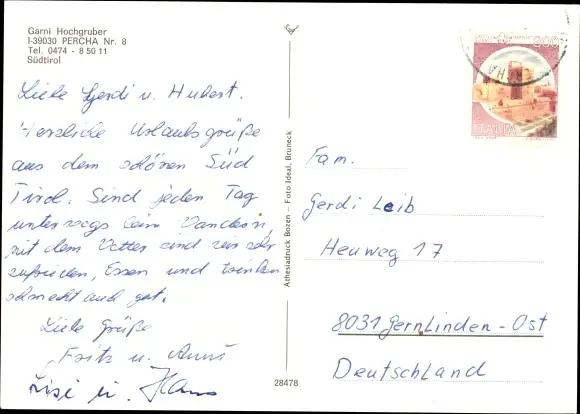 Garni Hochgruber
I-39030 PERCHA Nr. 8
Tel. 0474 - 8 50 11
Südtirol
Liebe Gerdi u. Hubert.
Herzliche Urlaubsgrüße
aus dem schönen Süd
Tirol. Sind jeden Tag
unterwegs beim Wandern,
mit dem Wetter sind wir sehr
zufrieden, Essen und trinken
schmeckt auch gut.
Liebe Grüße
Fritz u. Anni
Lisi u. Hans
Athesiadruck Bozen – Foto Ideal, Bruneck
28478
ITALIA
Fam.
Gerdi Leib
Heuweg 17
8031 Gernlinden-Ost
Deutschland